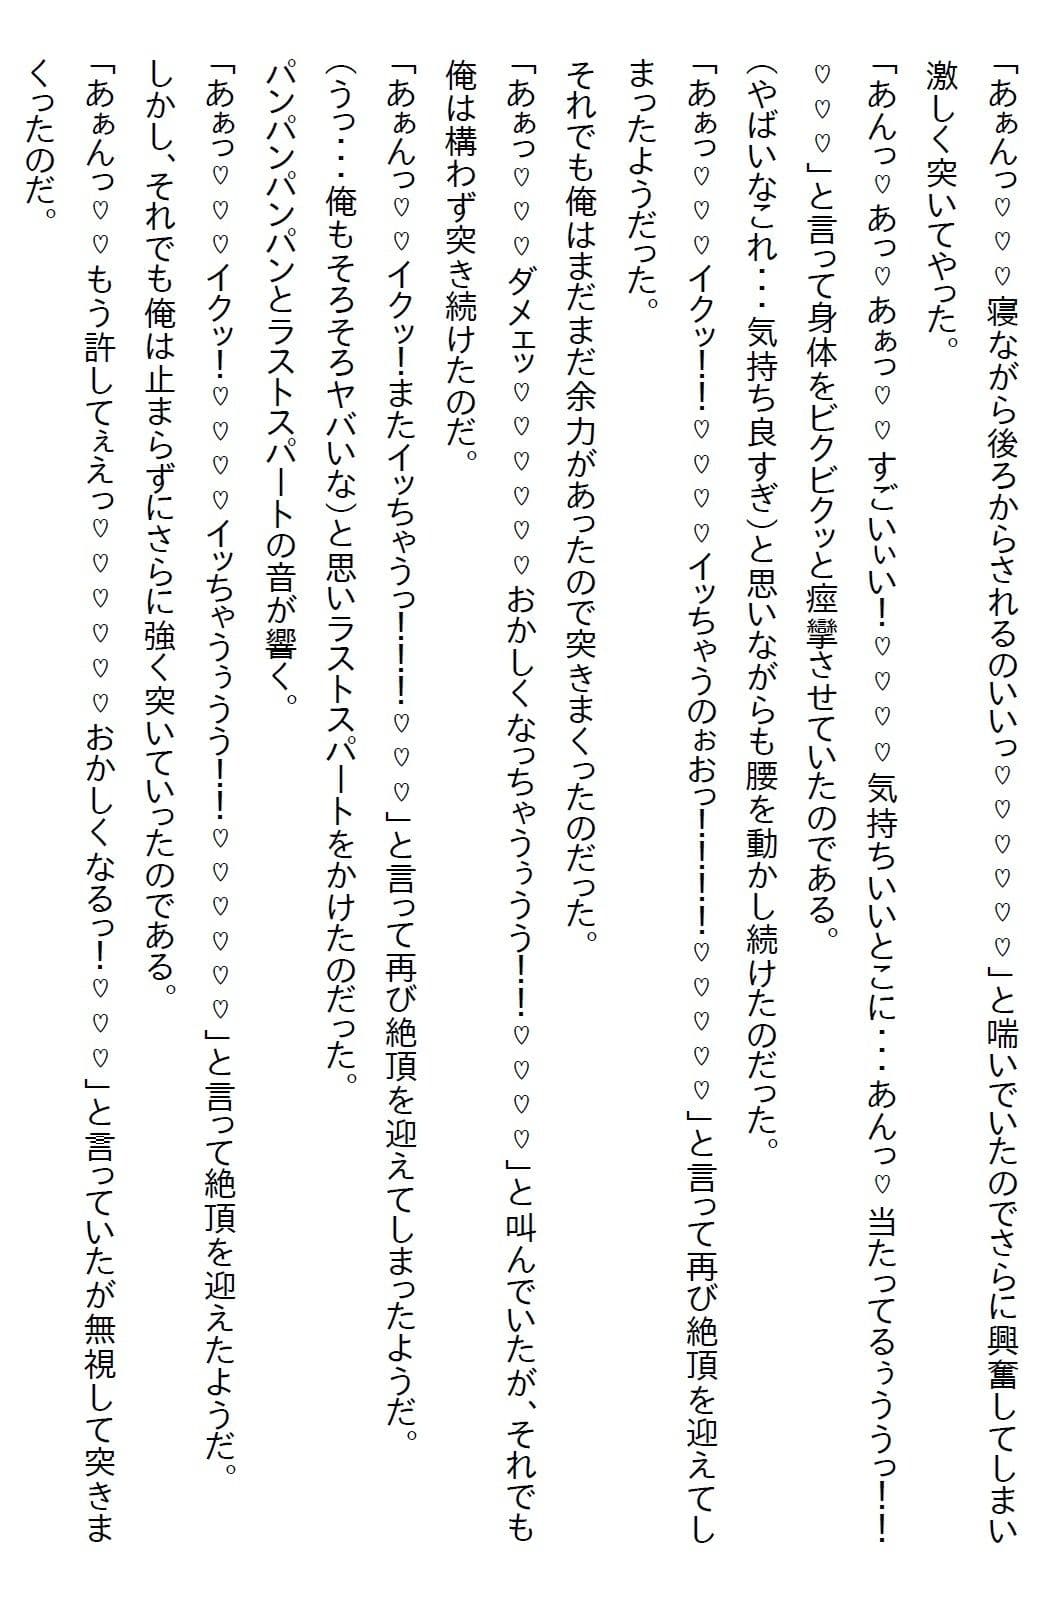 「あぁんっ♡♡♡寝ながら後ろからされるのいいっ♡♡♡♡♡♡」と喘いでいたのでさらに興奮してしまい
激しく突いてやった。
「あんっ♡あっ♡あぁっ♡♡すごいぃい！♡♡♡♡気持ちいいとこに･･･あんっ♡当たってるぅううっ！！
♡♡♡」と言って身体をビクビクッと痙攣させていたのである。
（やばいなこれ･･･気持ち良すぎ）と思いながらも腰を動かし続けたのだった。
「あぁっ♡♡♡イクッ！！♡♡♡♡イッちゃうのぉおっ！！！！♡♡♡♡♡」と言って再び絶頂を迎えてし
まったようだった。
それでも俺はまだまだ余力があったので突きまくったのだった。
「あぁっ♡♡♡ダメェッ♡♡♡♡♡♡おかしくなっちゃうぅうう！！♡♡♡♡」と叫んでいたが、それでも
俺は構わず突き続けたのだ。
「あぁんっ♡♡イクッ！またイッちゃうっ！！！♡♡♡」と言って再び絶頂を迎えてしまったようだ。
（うっ･･･俺もそろそろヤバいな）と思いラストスパートをかけたのだった。
パンパンパンパンとラストスパートの音が響く。
「あぁっ♡♡♡イクッ！♡♡♡♡イッちゃうぅうう！！♡♡♡♡♡♡」と言って絶頂を迎えたようだ。
しかし、それでも俺は止まらずにさらに強く突いていったのである。
「あぁんっ♡♡もう許してぇえっ♡♡♡♡♡♡おかしくなるっ！♡♡♡」と言っていたが無視して突きま
くったのだ。